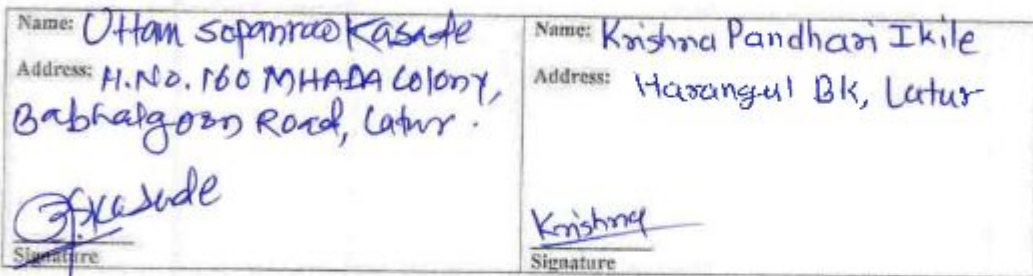 Name: Uttam Sopanrao Kasade
Address: H.No. 160 MHADA Colony,
Babhalgaon Road, Latur.
Kasade
Signature
Name: Krishna Pandhari Ikile
Address: Harangul BK, Latur
Krishna
Signature